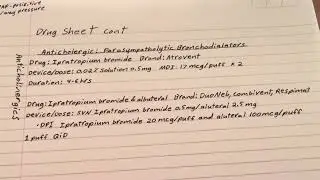 PAP-positive
airway pressure
Drug Sheet Cont
Anticholergic: Parasympatholytic Bronchodialators
Drug: Ipratropium bromide Brand: Atrovent
Device/dose: 0.02% Solution 0.5mg MDI: 17 mcg/puff x 2
Duration: 4-6hrs
Anticholinergics
Drug: Ipratropium bromide & albuteral Brand: DuoNeb, Combivent, Respimat
Device/dose: SVN Ipratropium bromide 0.5mg/aluteral 2.5mg
• DPI Ipratropium bromide 20 mcg/puff and aluteral 100mcg/puff
1 puff QiD